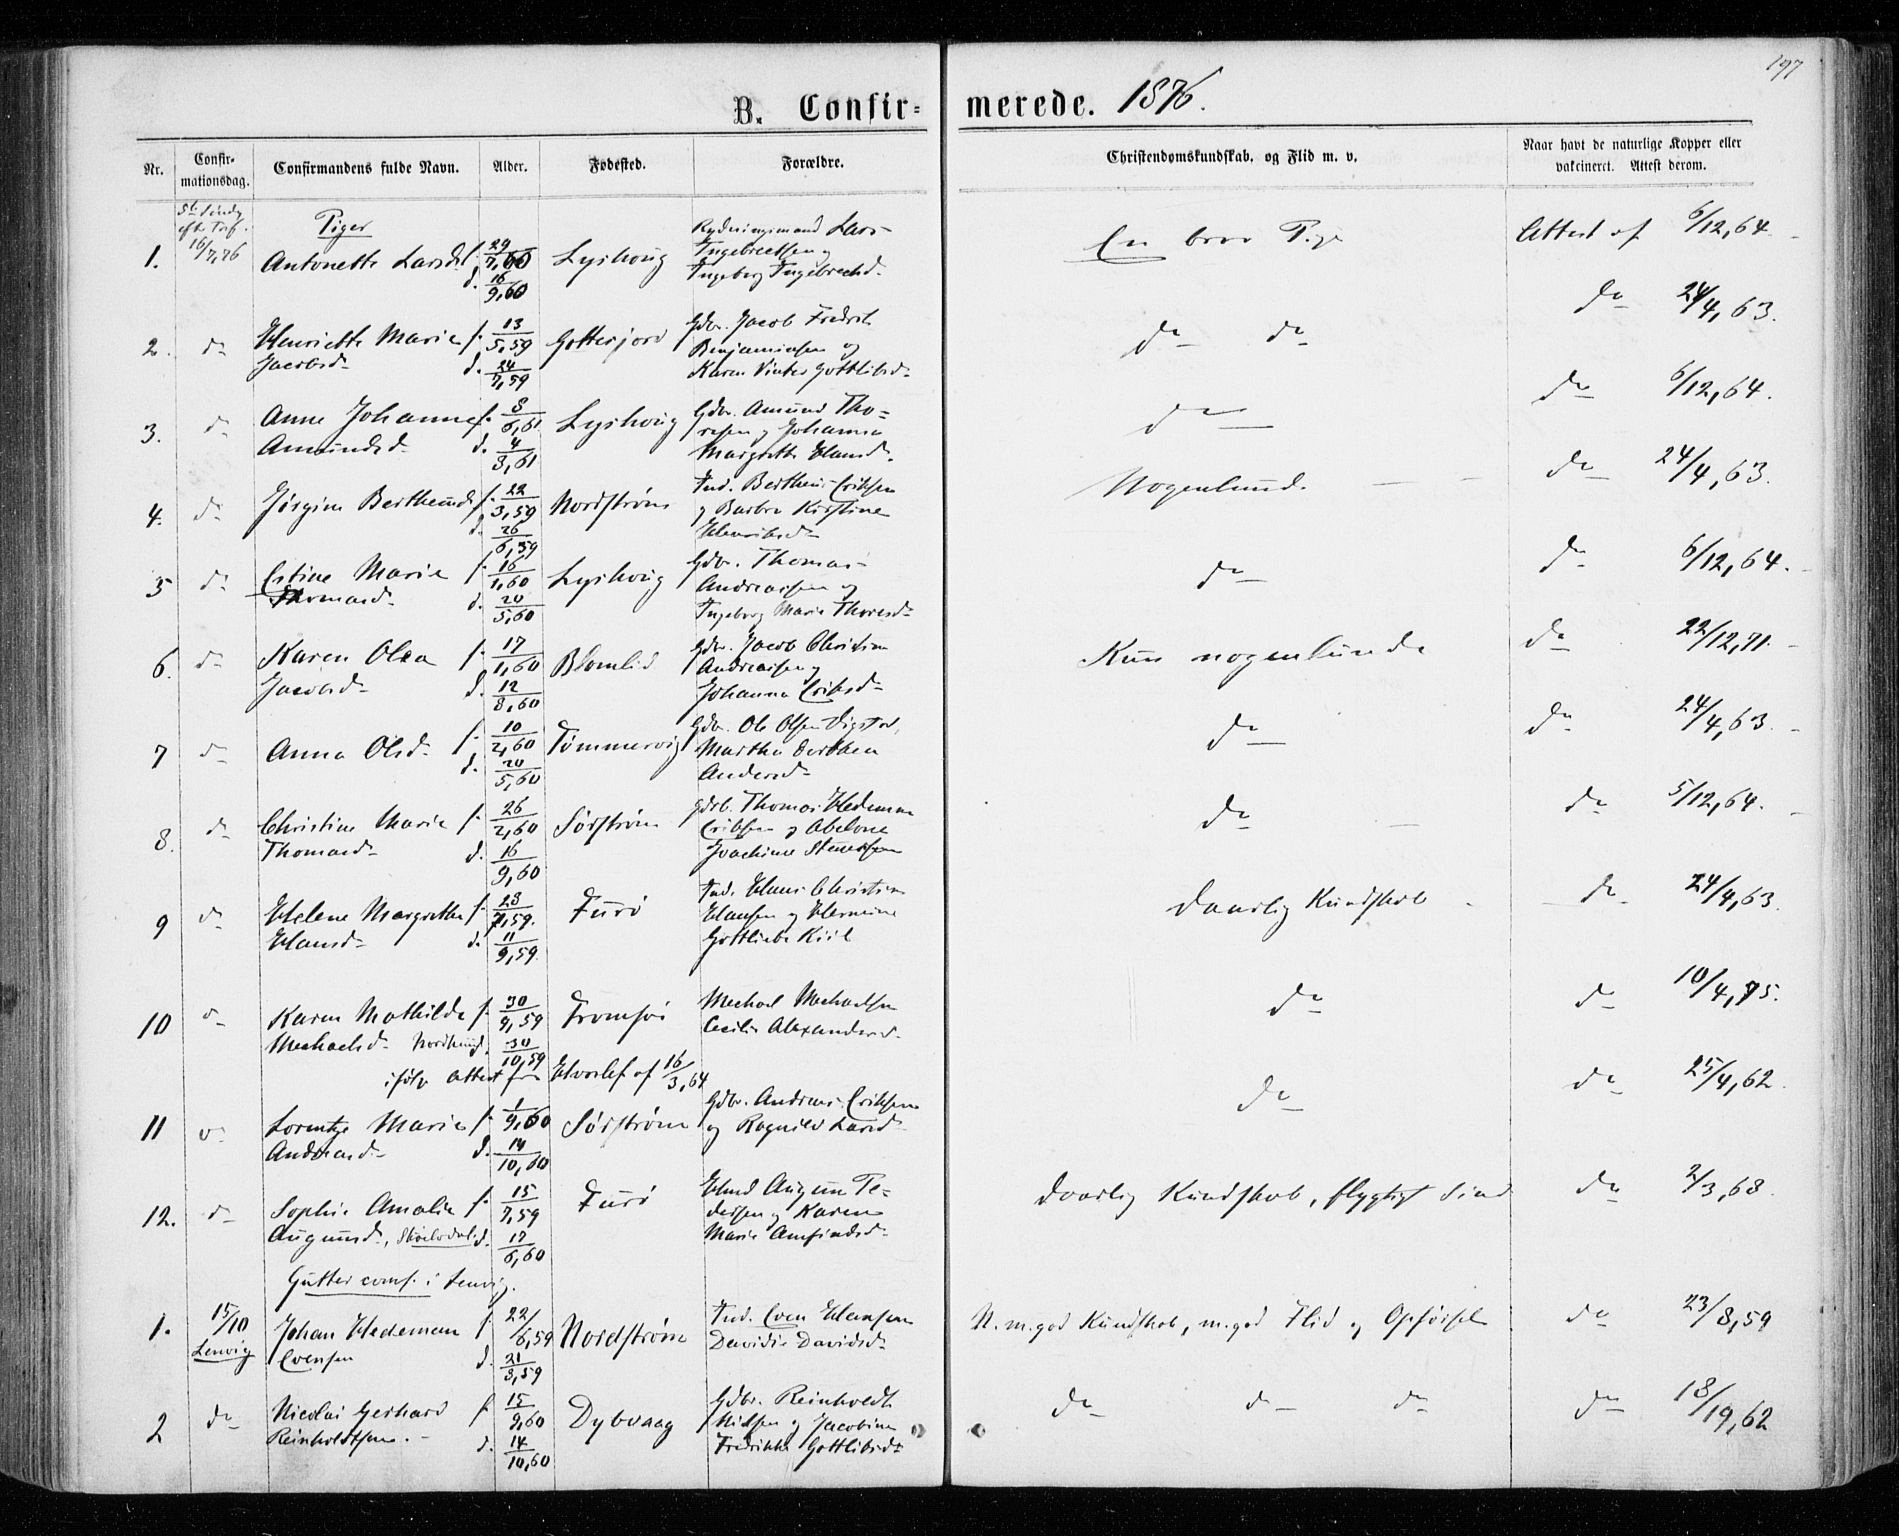 197
B. Confir=merede. 1876.
Nr. Confirmationsdag. Confirmandens fulde Navn. Alder. Fødested. Forældre. Christendomskundskab, og Flid m. v. Naar havt de naturlige Kopper eller vakcineret. Attest derom.
5te Søndg
eft. Tref.
16/7,76
Piger
1. Antonette Larsd. f. 29/7,60 Lyshoug Rydningsmand Lars En brav Pige Attest af 6/12,64
d. 16/9,60 Ingebrectsen og
Ingeborg Ingebrechtsd.
2. do Henriette Marie f. 13/5,59 Gottesjord Gdbr. Jacob Fredrik do do do 24/4,63.
Jacobsd. d. 24/7,59 Benjaminsen og
Karen Vinter Gottlibsd.
3. do Anne Johanne f. 8/6,61 Lyshoug Gdbr. Amund Tho= do do 6/12,64.
Amundsd. d. 4/8,61 resen og Johanna
Margrethe Hansd.
4. do Jørgine Bertheusd. f. 22/3,59 Nordstrøm Ind. Bertheus Eriksen Nogenlund. do 24/4,63.
d. 26/6,59 og Barbra Kirstine
Henriksd.
5 do Estine Marie f. 16/1,60 Lyshoug Gdbr. Thomas do do 6/12,64.
Thomasd. d. 20/5,60 Andreassen og
Ingeborg Marie Thoresd.
6. do Karen Olea f. 17/1,60 Blomlid Gdbr. Jacob Christian Kun nogenlunde do 22/12,71.
Jacobsd. d. 12/8,60 Andreassen og
Johanna Eriksd.
7 do Anna Olsd. f. 10/2,60 Tømmervig Gdbr. Ole Olsen do do 24/4,63.
d. 20/5,60 Martha Dorthea
Andersd.
8. do Christine Marie f. 26/2,60 Sørstrøm Gdbr. Thomas Hedeman do do 5/12,64.
Thomasd. d. 16/9,60 Eriksen og Abelone
Joachime
9 do Helene Margrethe f. 23/7,59. Furø Ind. Hans Christian Daarlig Kundskab do 24/4,63.
Hansd. d. 11/9,59. Hansen og Hermine
Gottliebe Kiil
10 do Karen Mathilde f. 30/9,59 Tromsø Mechael Mechaelsen do do 10/4,75.
Mechaelsd. d. 30/10,59 Cecilie Alexandersd.
ifølg Attest fra af 16/3,64
11 do Lorentze Marie f. 1/9,60 Sørstrøm Gdbr. Andreas Eriksen do do 25/4,62
Andreasd. d. 14/10,60 og Ragnild Larsd.
12. do Sophie Amalie f. 15/7,59 Furø Hmd Augun Pe= Daarlig Kundskab, flygtigt Sind do 2/3,68.
Augunsd., d. 17/6,60 dersen og Karen
Marie Amfindsd.
Gutter conf. i Lenvig.
1. 15/10 Johan Hedeman f. 22/6,59 Nordstrøm Ind. Even Hansen N. m. god Kundskab, m. god Flid og Opførsel do 23/8,59
Lenvig Evensen d. 21/8,59 Davidie Davidsd.
2 do Nicolai Gerhard f. 15/9,60 Dybvaag Gdbr. Reinholdt do do do do 18/19,62
Reinholdtsen. d. 14/10,60 Nilsen og Jacobine
Fredrikke Gottlibsd.